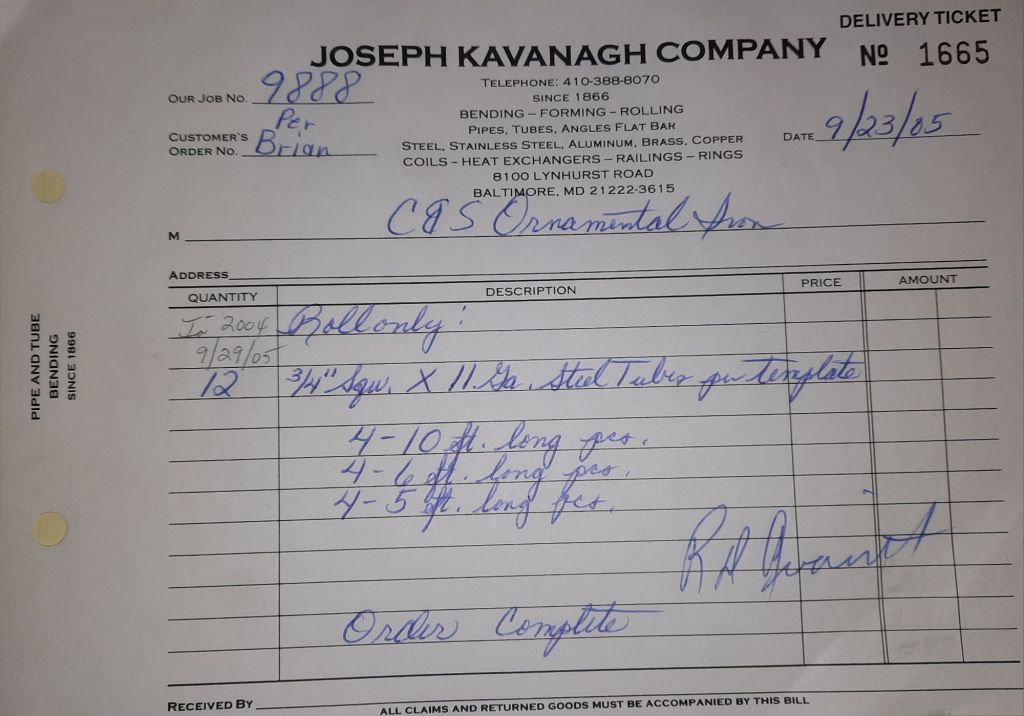 DELIVERY TICKET
JOSEPH KAVANAGH COMPANY
Nº 1665
TELEPHONE: 410-388-8070
SINCE 1866
BENDING – FORMING – ROLLING
PIPES, TUBES, ANGLES FLAT BAR
STEEL, STAINLESS STEEL, ALUMINUM, BRASS, COPPER
COILS – HEAT EXCHANGERS – RAILINGS – RINGS
8100 LYNHURST ROAD
BALTIMORE, MD 21222-3615
OUR JOB NO. 9888
CUSTOMER'S ORDER NO. Per Brian
DATE 9/23/05
M C&S Ornamental Iron
ADDRESS
QUANTITY DESCRIPTION PRICE AMOUNT
2004 Roll only:
9/29/05
12 3/4" Squ. X 11 Ga. Steel Tubes per template
4-10 ft. long pcs.
4-6 ft. long pcs.
4-5 ft. long pcs.
Order Complete
RECEIVED BY
ALL CLAIMS AND RETURNED GOODS MUST BE ACCOMPANIED BY THIS BILL
PIPE AND TUBE
BENDING
SINCE 1866